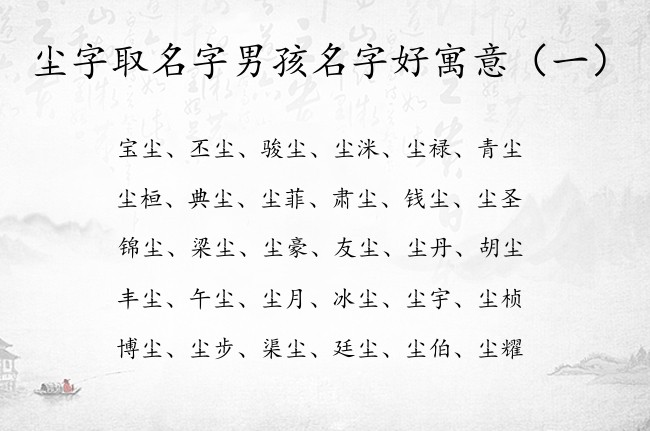 尘字取名字男孩名字好寓意（一）
宝尘、丕尘、骏尘、尘洣、尘禄、青尘
尘桓、典尘、尘菲、肃尘、钱尘、尘圣
锦尘、梁尘、尘豪、友尘、尘丹、胡尘
丰尘、午尘、尘月、冰尘、尘宇、尘桢
博尘、尘步、渠尘、廷尘、尘伯、尘耀